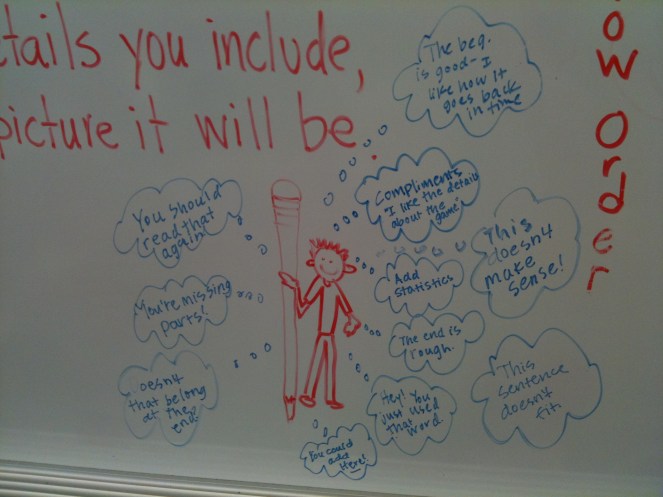 tails you include,
picture it will be.
ow Order
The beg.
is good - I
like how it
goes back
in time
Compliments
"I like the details
about the
game"
You should
read that
again
This
doesn4
make
sense!
Add
statistics
You're missing
parts!
The end is
rough.
Doesn4
that belong
at the
end?
This
sentence
doesn't
fit.
Hey! You
just used
that
word.
You could
add
Here!